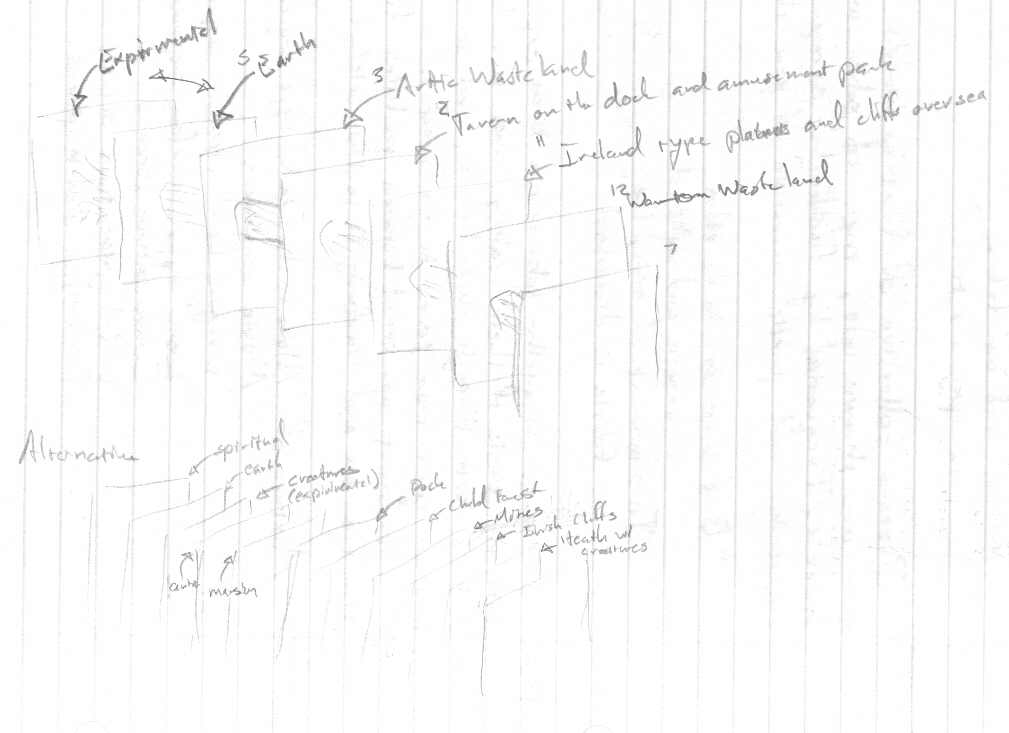 Expirmental
5 Earth
3 Artic Wasteland
2 Tavern on the dock and amusement park
11 Ireland type and cliffs over sea
12 Wasteland
7
Alternative
spiritual
earth
creatures
(expirimental)
Dock
Child Forest
Mines
Irish Cliffs
Heath w/
creatures
mansion